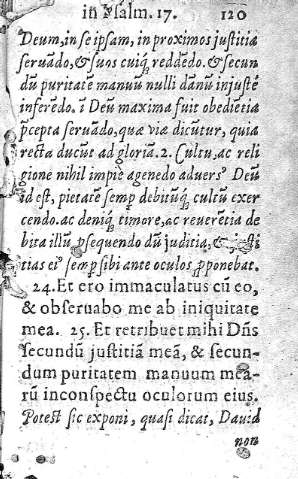 in Psalm. 17. 120
Deum, in se ipsam, in proximos justitia
seruãdo, & suos cuiq; reddẽdo. & secun
dũ puritatẽ manuũ nulli dãnũ injustè
inferẽdo. ĩ Deũ maxima fuit obediẽtia
p̃cepta seruãdo, quæ viæ dicũtur, quia
recta ducũt ad gloriã. 2. Cultu, ac reli
gione nihil impiè agenedo aduers⁹ Deũ
id est, pietatẽ semp debitũq; cultũ exer
cendo. ac deniq; timore, ac reuerẽtia de
bita illũ p̱sequendo dũ juditia, & justi
tias ei⁹ semp sibi ante oculos p̱ponebat.
24. Et ero immaculatus cũ eo,
& obseruabo me ab iniquitate
mea. 25. Et retribuet mihi Dñs
secundũ justitiã meã, & secun-
dum puritatem manuum mea-
rũ in conspectu oculorum eius.
Potest sic exponi, quasi dicat, Dauid
non